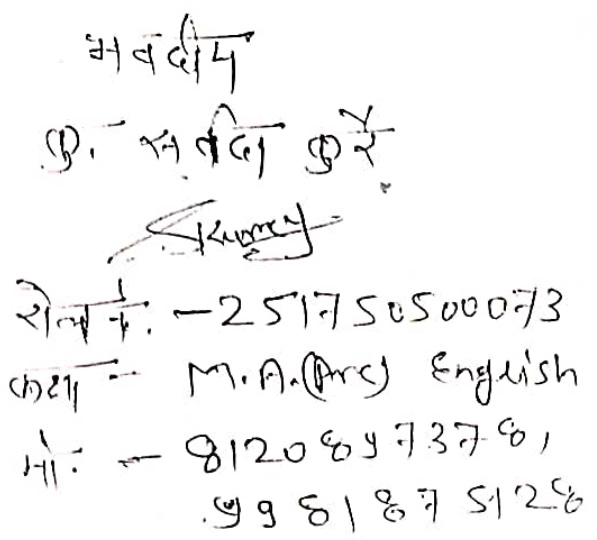 भवदीय
कु. सर्वदा कुर्रे
रोल नं. - 251750500073
कक्षा - M.A. (Pre) English
मो. - 8120897378,
9981875128